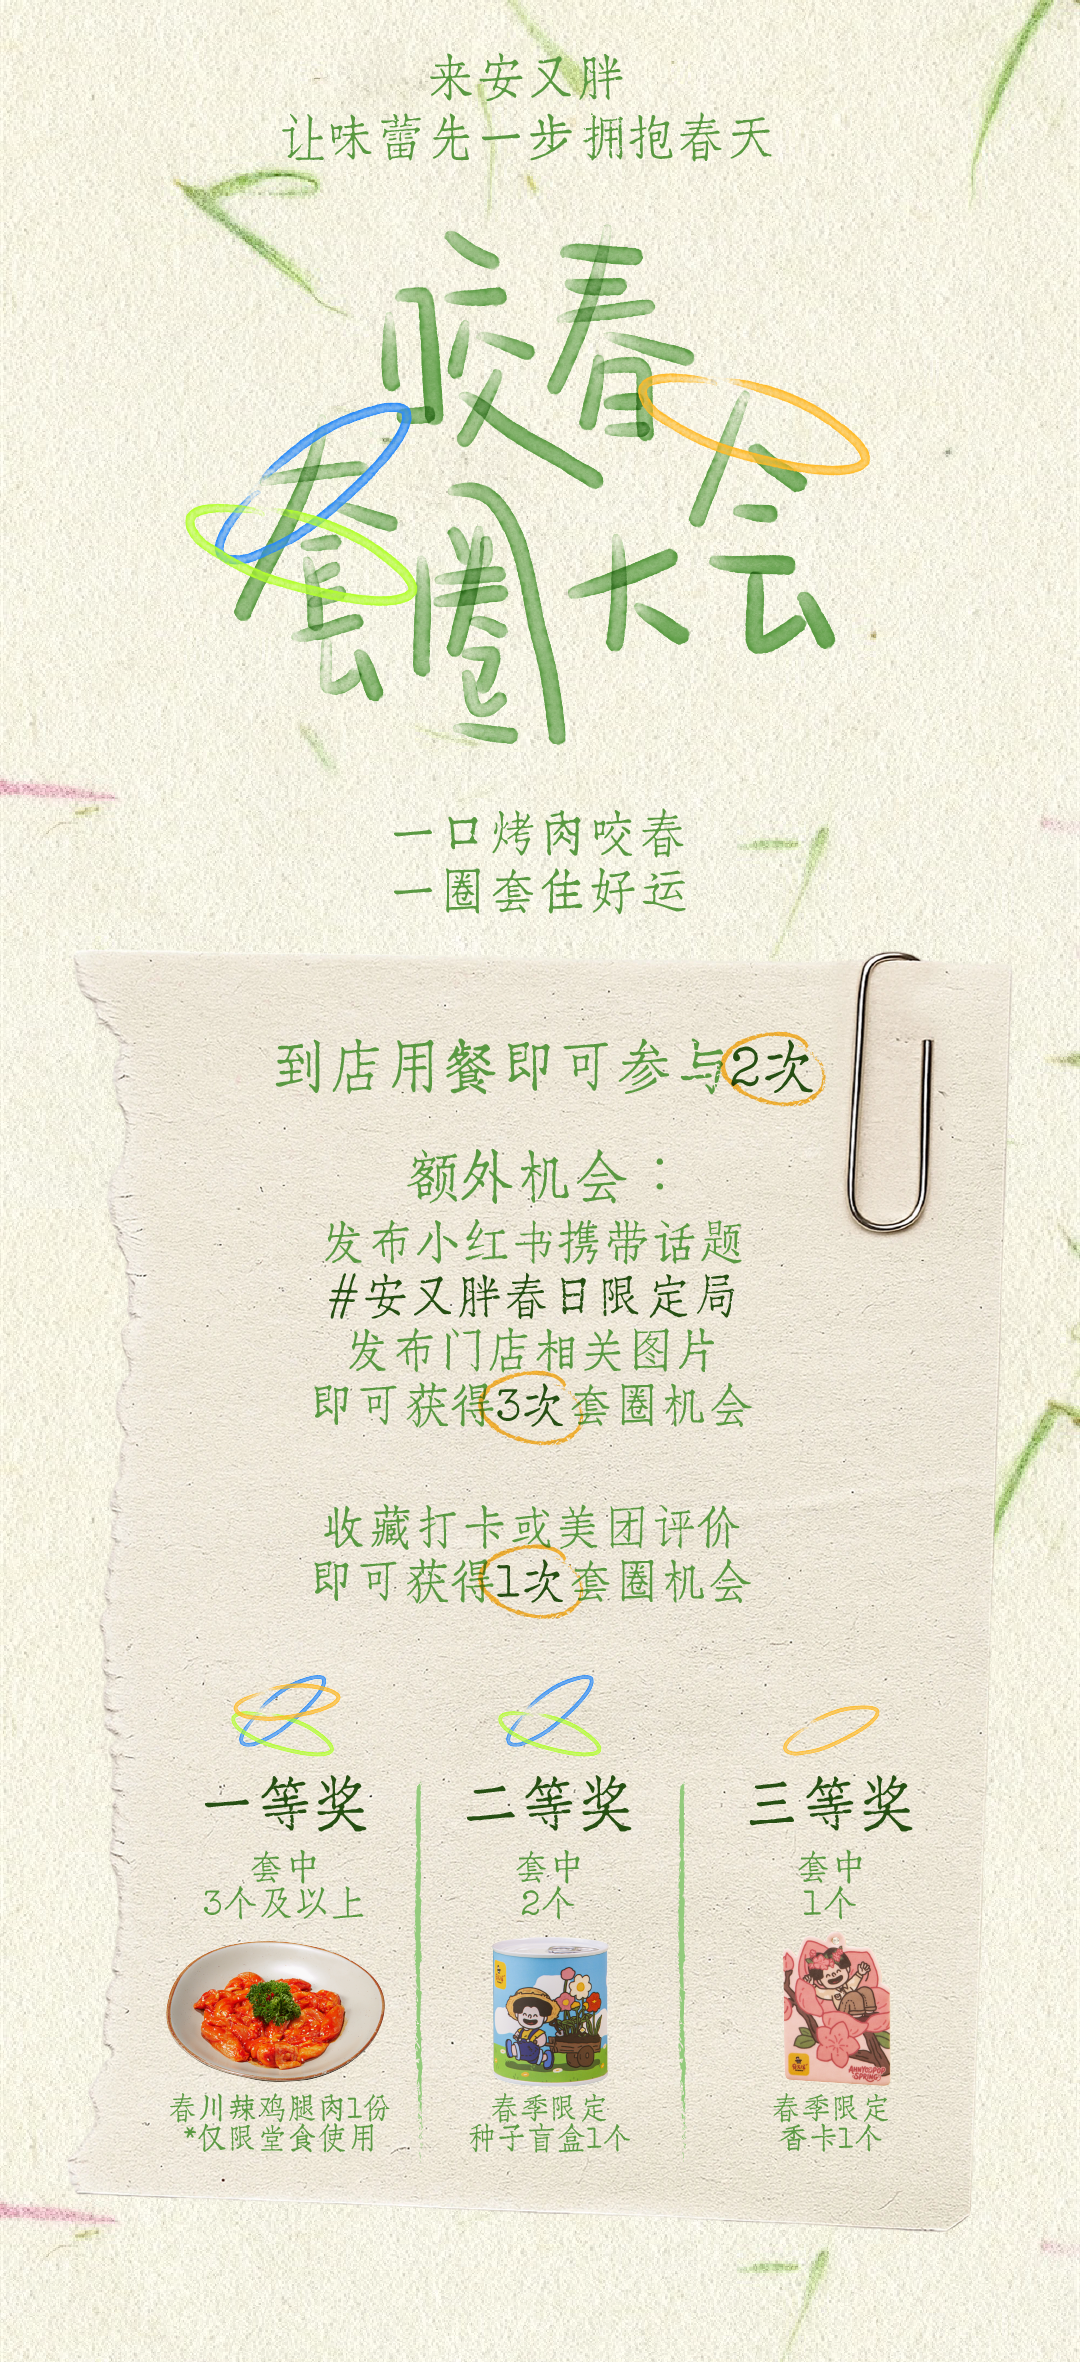 来安又胖
让味蕾先一步拥抱春天
咬春
套圈大会
一口烤肉咬春
一圈套住好运
到店用餐即可参与2次
额外机会：
发布小红书携带话题
#安又胖春日限定局
发布门店相关图片
即可获得3次套圈机会
收藏打卡或美团评价
即可获得1次套圈机会
一等奖
套中
3个及以上
春川辣鸡腿肉1份
*仅限堂食使用
二等奖
套中
2个
春季限定
种子盲盒1个
三等奖
套中
1个
AHNYOUPOP
SPRING
春季限定
香卡1个